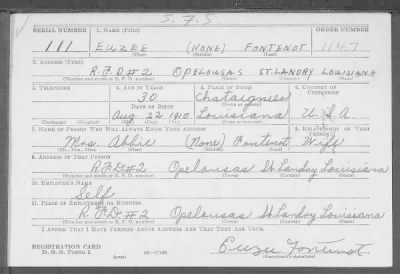 S. F. S.
SERIAL NUMBER 1. NAME (Print) ORDER NUMBER
111 EUZEE (NONE) FONTENOT 1147
(First) (Middle) (Last)
2. ADDRESS (Print)
R.F.D#2 OPELOUSAS ST. LANDRY LOUISIANA
(Number and street or R. F. D. number) (Town) (County) (State)
3. TELEPHONE 4. AGE IN YEARS 5. PLACE OF BIRTH 6. COUNTRY OF CITIZENSHIP
30 Chataignier
DATE OF BIRTH (Town or county)
Aug 22 1910 Louisiana U.S.A
(Exchange) (Number) (Mo.) (Day) (Yr.) (State or country)
7. NAME OF PERSON WHO WILL ALWAYS KNOW YOUR ADDRESS 8. RELATIONSHIP OF THAT PERSON
Mrs. Ablie (None) Fontenot Wife
(Mr., Mrs., Miss) (First) (Middle) (Last)
9. ADDRESS OF THAT PERSON
R.F.D#2 Opelousas St Landry Louisiana
(Number and street or R. F. D. number) (Town) (County) (State)
10. EMPLOYER'S NAME
Self
11. PLACE OF EMPLOYMENT OR BUSINESS
R.F.D.#2 Opelousas St Landry Louisiana
(Number and street or R. F. D. number) (Town) (County) (State)
I AFFIRM THAT I HAVE VERIFIED ABOVE ANSWERS AND THAT THEY ARE TRUE.
REGISTRATION CARD
D. S. S. Form 1
(over) 16—17105